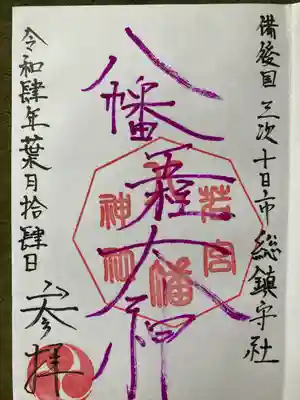 備後国 三次十日市 総鎮守社
八幡大神
若宮
八幡
神社
令和肆年葉月拾肆日
参拝